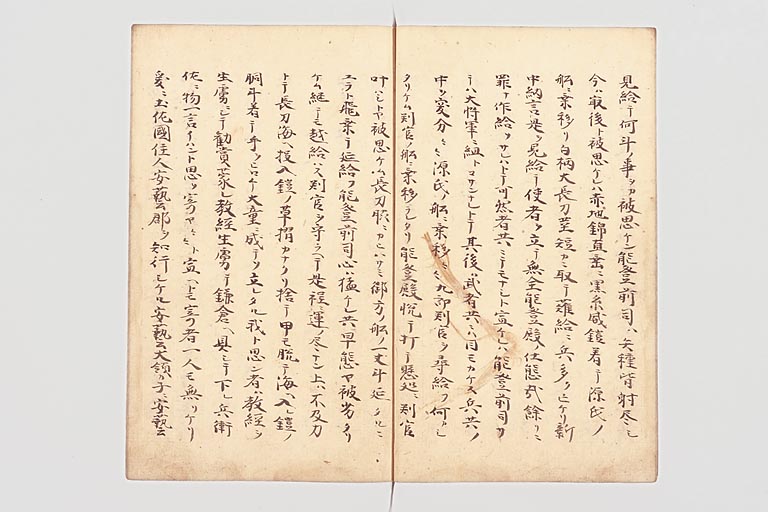 見給テ何斗ノ事ヲカ被思ケン能登前司ハ矢種皆射尽シ
今ハ最後ト被思ケレハ赤地錦直垂ニ黒糸威鎧着テ源氏ノ
船ニ乗移リ白柄大長刀茎短カニ取テ薙給ニ兵多クヒケリ新
中納言是ヲ見給テ使者ヲ立テ無全能登殿仕態哉余リニ
罪ナ作給ソサレハトテ可然者共ニテモナシト宣ケレハ能登前司サ
テハ大将軍ニ組トコサンナレトテ其後ハ武者共ニハ目モカケス兵共ノ
中ヲ変分々々源氏ノ船ニ乗移々々九郎判官ヲ尋給フ何カシ
タリケム判官ノ船ニ乗移テケリ能登殿悦テ打テ懸処ニ判官
叶ハシトヤ被思ケム長刀脇ニカヒハサミ御方ノ船ノ一丈斗延タルニ
ユラト飛乗テ延給フ能登前司心ハ猛ケレ共早態ヤ被劣タリ
ケム継テモ越給ハス判官ヲ守ラヘテ是程ニ運ノ尽ナン上ハ不及力
トテ長刀海ヘ投入鎧ノ草摺カナクリ捨テ甲モ脱テ海ヘ入レ鎧ノ
胴斗着テ手ヲヒロケ大童ニ成テソ立レタル我ト思ン者ハ教経ヲ
生虜ニシテ勧賞蒙レ教経生虜テ鎌倉ヘ具シテ下レ兵衛
佐ニ物一言イハント思フ寄ヤ々々ト宣ヘトモ寄者一人モ無リケリ
爰ニ土佐國住人安藝郡ヲ知行シケル安藝大領ノ子ニ安藝